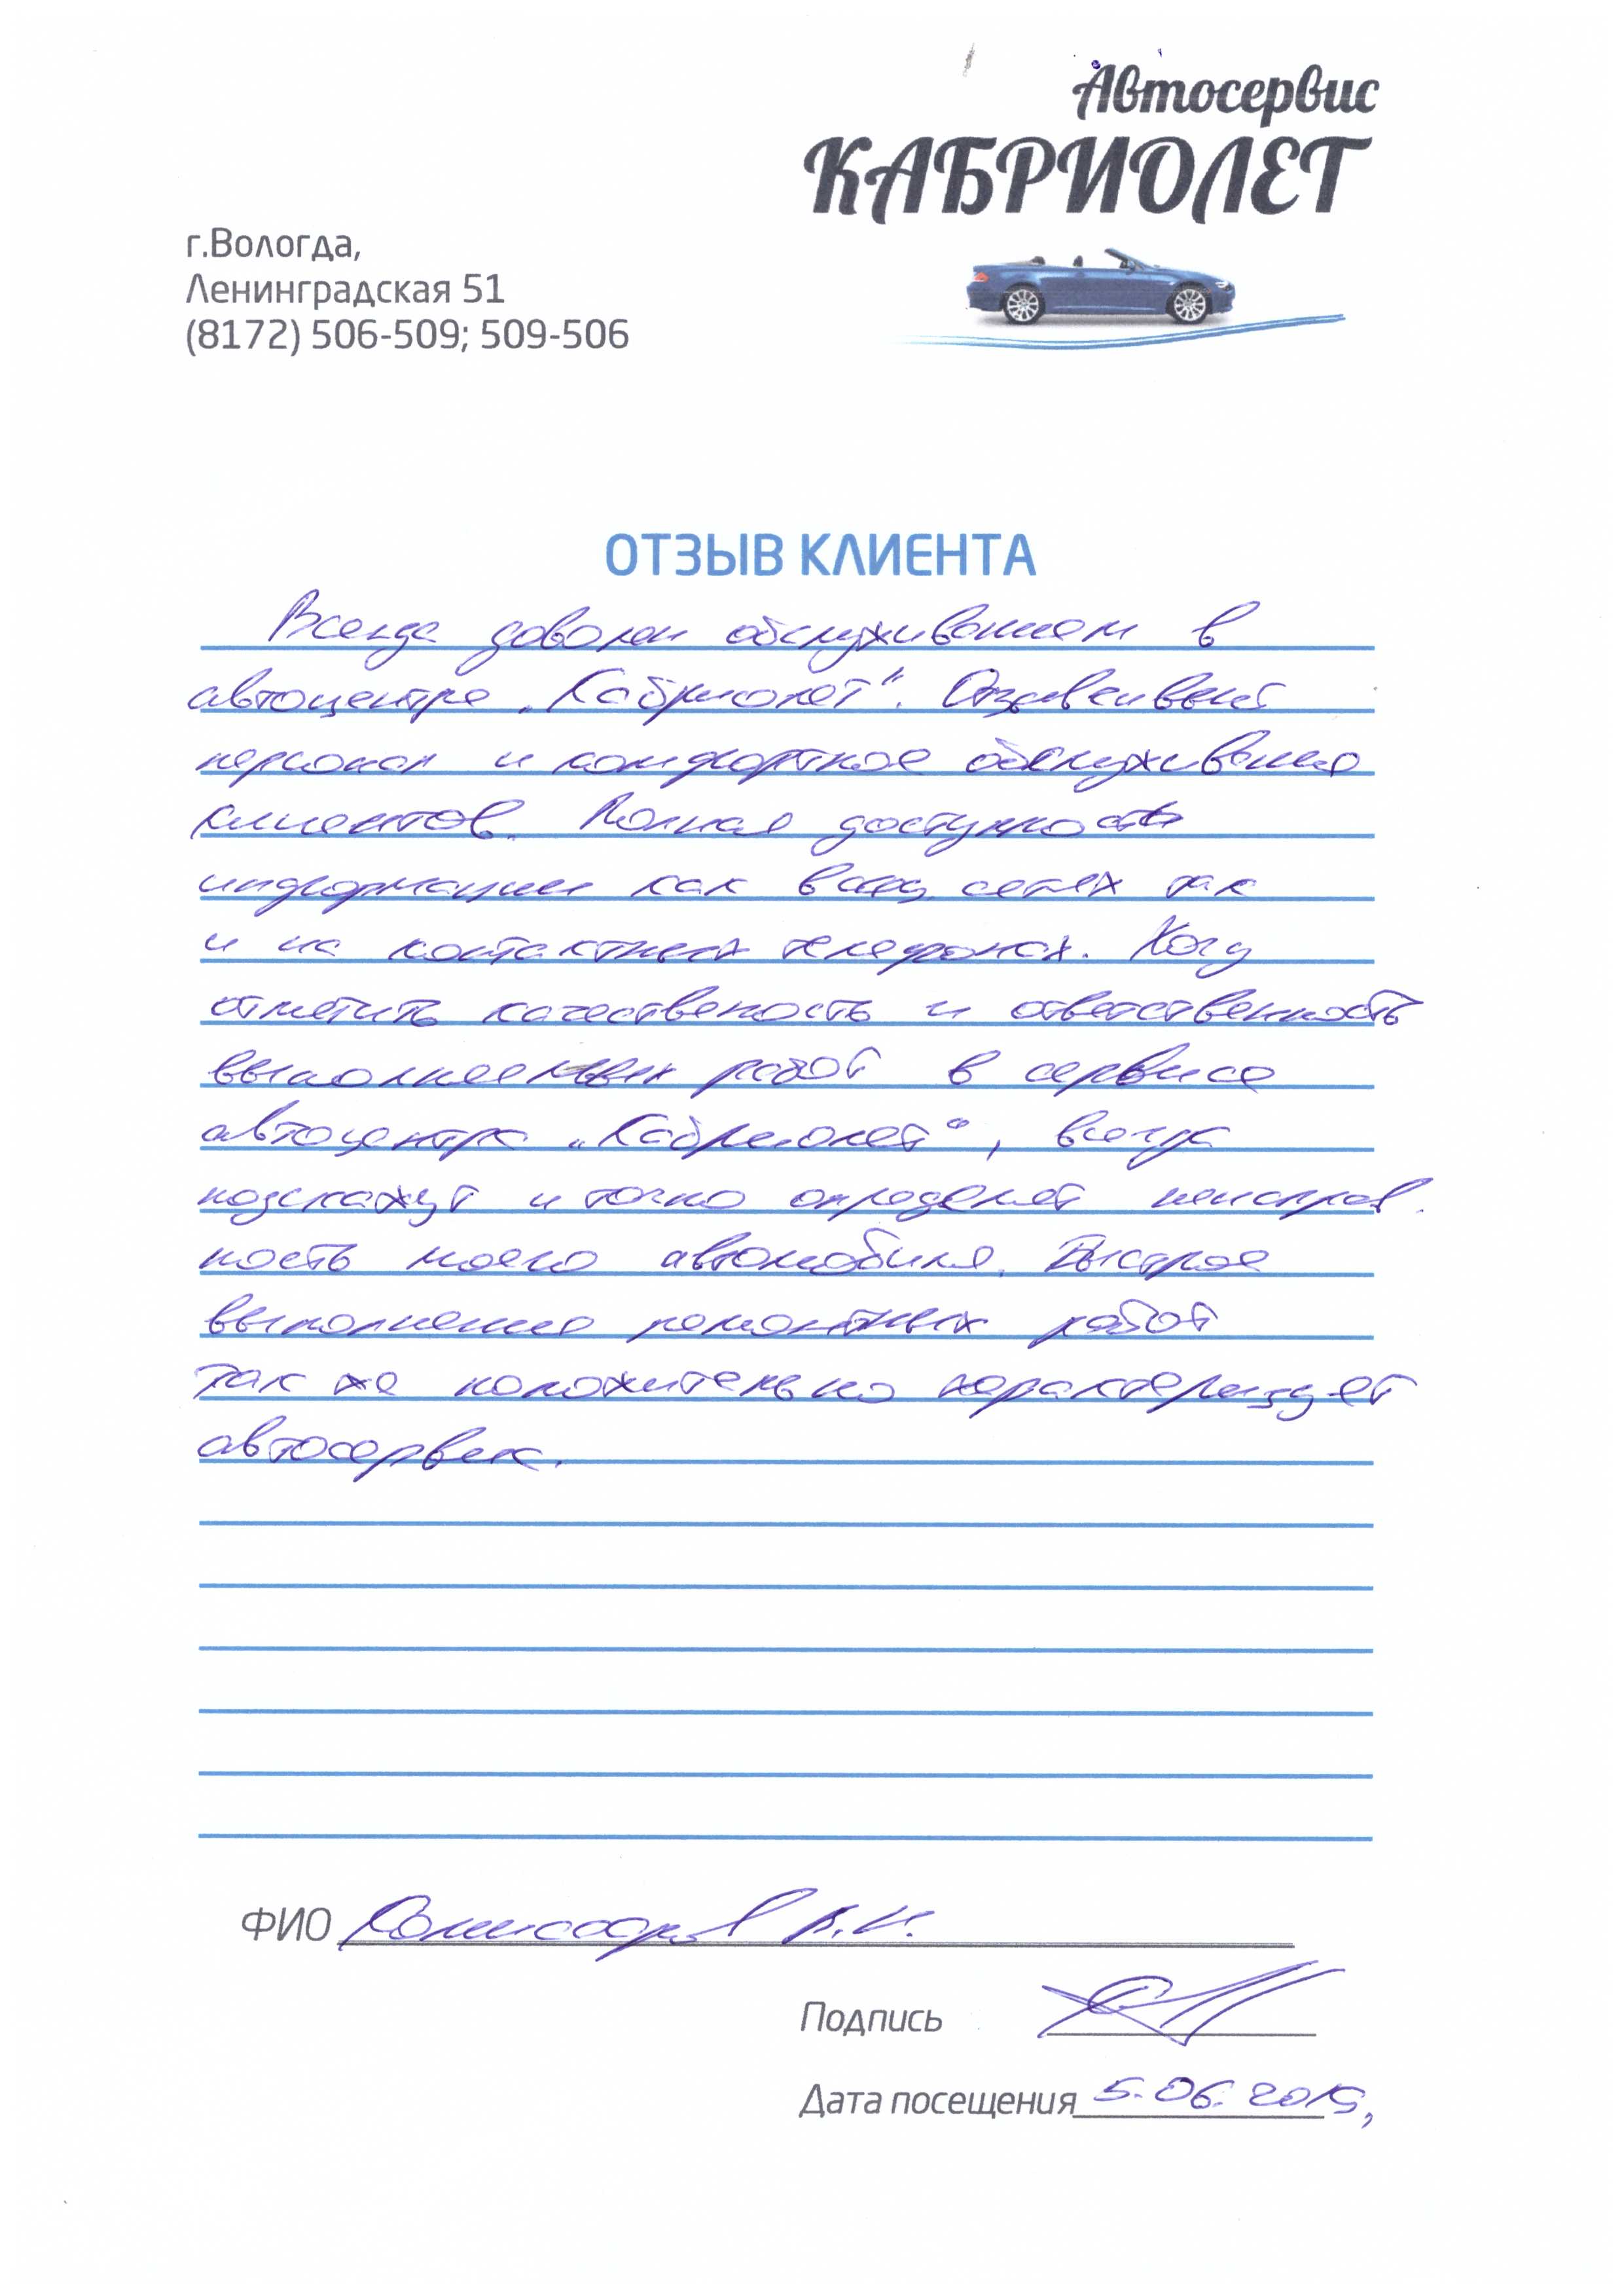 Автосервис
КАБРИОЛЕТ
г.Вологда,
Ленинградская 51
(8172) 506-509; 509-506
ОТЗЫВ КЛИЕНТА
Всегда доволен обслуживанием в
автоцентре „Кабриолет“. Отзывчивый
персонал и комфортное обслуживание
клиентов. Полная доступность
информации как в сетях так
и на контактных телефонах. Хочу
отметить качественость и ответственность
выполнееных работ в сервисе
автоцентра „Кабриолет“, всегда
подскажут и точно определят неисправ
ность моего автомобиля. Быстрое
выполнение ремонтных работ
так же положительно характеризует
автосервис.
ФИО В.И.
Подпись
Дата посещения 5.06.2015,